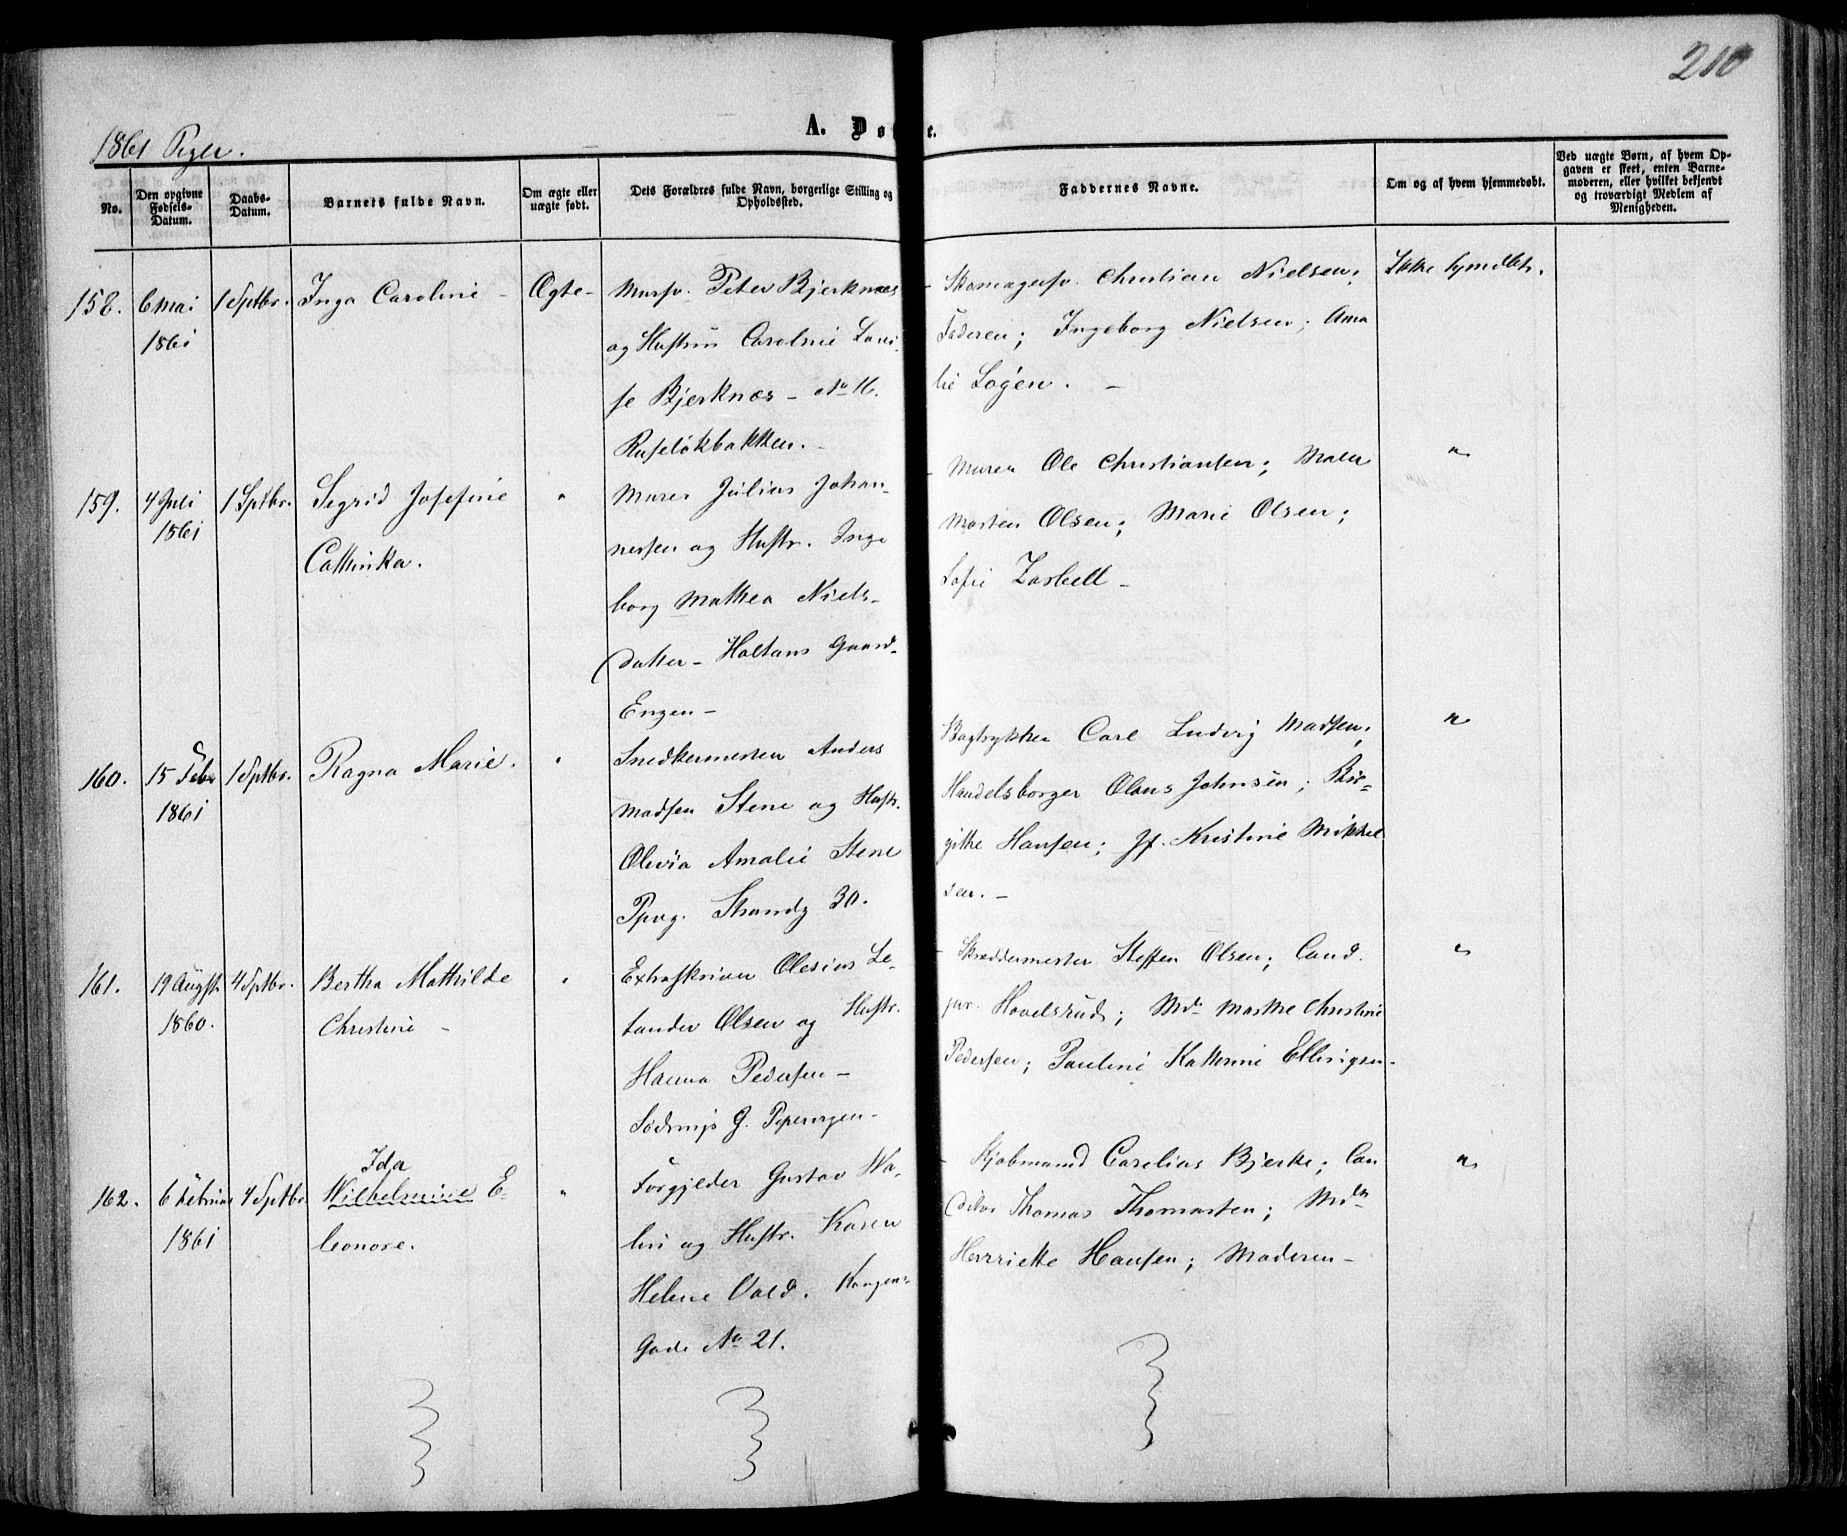 210
1861 Piger.
A. Do t e.
No.
Den opgivne Fødsels-Datum.
Daabs-Datum.
Barnets fulde Navn.
Om ægte eller uægte født.
Dets Forældres fulde Navn, borgerlige Stilling og Opholdssted.
Faddernes Navne.
Om og af hvem hjemmedøbt.
Ved uægte Børn, af hvem Opgaven er skeet, enten Barnemoderen, eller hvilket bekjendt og troværdigt Medlem af Menigheden.
158. 6 Mai 1861
1 Sptbr.
Inga Caroline -
Ægte-
Mursv. Peter Bjerknæs
og Hustru Caroline Loui-
se Bjerknæs - No 16.
Ruseløkbakken. -
Skomagersv. Christian Nielsen;
Faderen; Ingeborg Nielsen; Ama
lie Løgen. -
Ikke hjmdbt.
159. 4 Juli 1861
1 Sptbr.
Sigrid Josefine
Cathinka.
"
Murer Julius Johan-
nessen og Hustr. Inge
borg Mathea Niels-
datter - Holtans Gaard-
Engen -
- Murer Ole Christiansen; Maler
Morten Olsen; Marie Olsen;
Sofie
"
160. 15 Febr 1861
1 Sptbr.
Ragna Marie.
"
Snedkermester Anders
Madsen Stene og Hustr.
Olivia Amalie Stene
Ppvg. Strandg 30.
Bogtrykker Carl Ludvig Madsen;
Handelsborger Olaus Johnsen; Bir-
gitte Hansen; Jf. Kristine Mikkel
sen. -
"
161. 19 Augst. 1860.
4 Sptbr.
Bertha Mathilde
Christine -
"
Extraskriver Olesius Le-
tander Olsen og Hustr.
Hanna Pedersen -
G. Pipervigen -
- Skræddermester Steffen Olsen; Cand.
jur. Hovelsrud; Md. Marthe Christine
Pedersen; Pauline Kathrine Ellingsen-
"
162. 6 Februar 1861
4 Sptbr
Ida
Wilhelmine E-
leonore.
"
Forgylder Gustav Wa-
lin og Hustr. Karen
Helene Vold. Kongens
Gade No 21.
Kjøbmand Carelius Bjerke; Can
ditor Thomas Thomasten; Mdm
Henriette Hansen; Moderen -
"